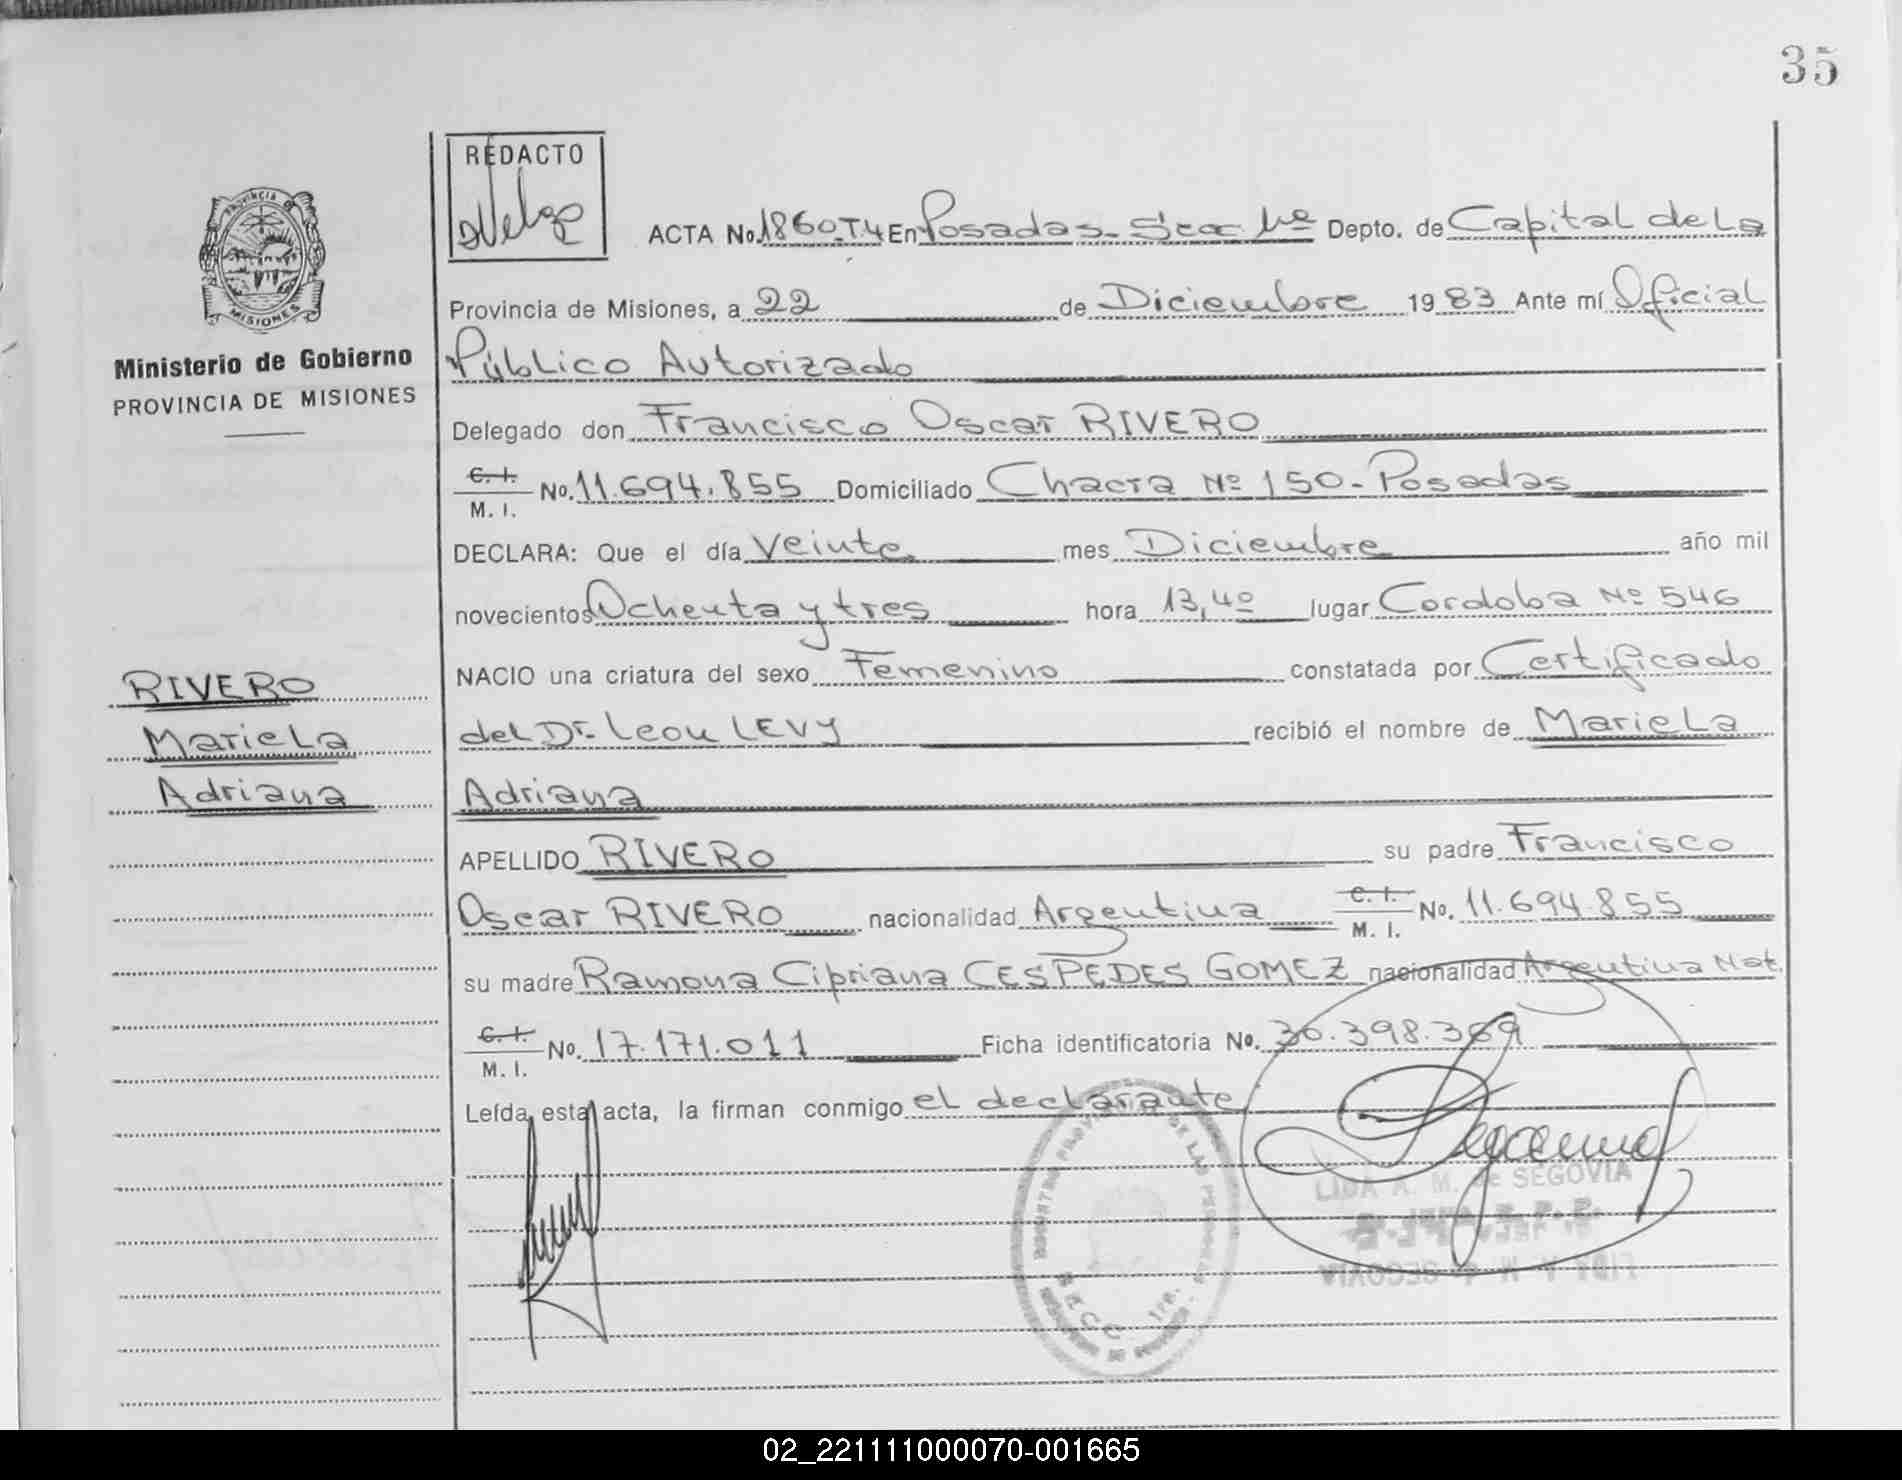 35
REDACTO
ACTA No. 1860-T4 En Posadas-Secc 1ra Depto. de Capital de La
Provincia de Misiones, a 22 de Diciembre 1983 Ante mí Oficial
Público Autorizado
Delegado don Francisco Oscar RIVERO
C. I.
M. I. No. 11.694.855 Domiciliado Chacra Nº 150-Posadas
DECLARA: Que el día Veinte mes Diciembre año mil
novecientos Ochenta y tres hora 13,40 lugar Cordoba Nº 546
NACIO una criatura del sexo Femenino constatada por Certificado
del Dr. Leon LEVY recibió el nombre de Mariela
Adriana
APELLIDO RIVERO su padre Francisco
Oscar RIVERO nacionalidad Argentina C. I. M. I. No. 11.694.855
su madre Ramona Cipriana CESPEDES GOMEZ nacionalidad Argentina Nat.
C. I.
M. I. No. 17.171.011 Ficha identificatoria No. 30.398.369
Leída esta acta, la firman conmigo el declarante
PROVINCIA DE MISIONES
MISIONES
Ministerio de Gobierno
PROVINCIA DE MISIONES
RIVERO
Mariela
Adriana
LIDA A. M. de SEGOVIA
SECC 1ra.
02_221111000070-001665